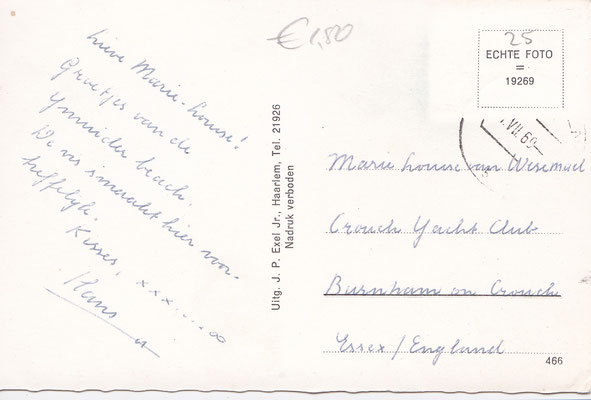 € 1,50
Lieve Marie-Louise!
Groetjes van de
Ymuider beach.
De vis smaakt hier voor-
treffelijk.
Kisses, x x x
Hans
Uitg. J. P. Exel Jr., Haarlem, Tel. 21926
Nadruk verboden
25
ECHTE FOTO
=
19269
VII.60
Marie Louise van Wesemael
Crouch Yacht Club
Burnham on Crouch
Essex/England
466